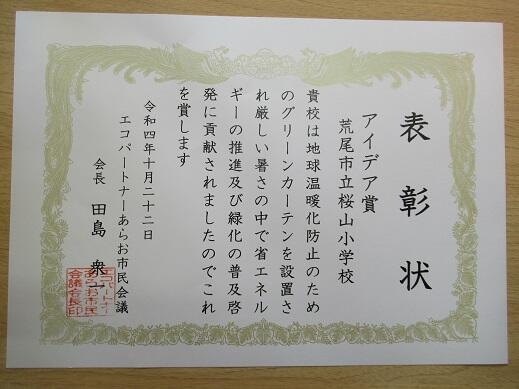 表彰状
アイデア賞
荒尾市立桜山小学校
貴校は地球温暖化防止のため
のグリーンカーテンを設置さ
れ厳しい暑さの中で省エネル
ギーの推進及び緑化の普及啓
発に貢献されましたのでこれ
を賞します
令和四年十月二十二日
エコパートナーあらお市民会議
会長 田島 衆一
エコパートナー
あらお市民
会議会長印